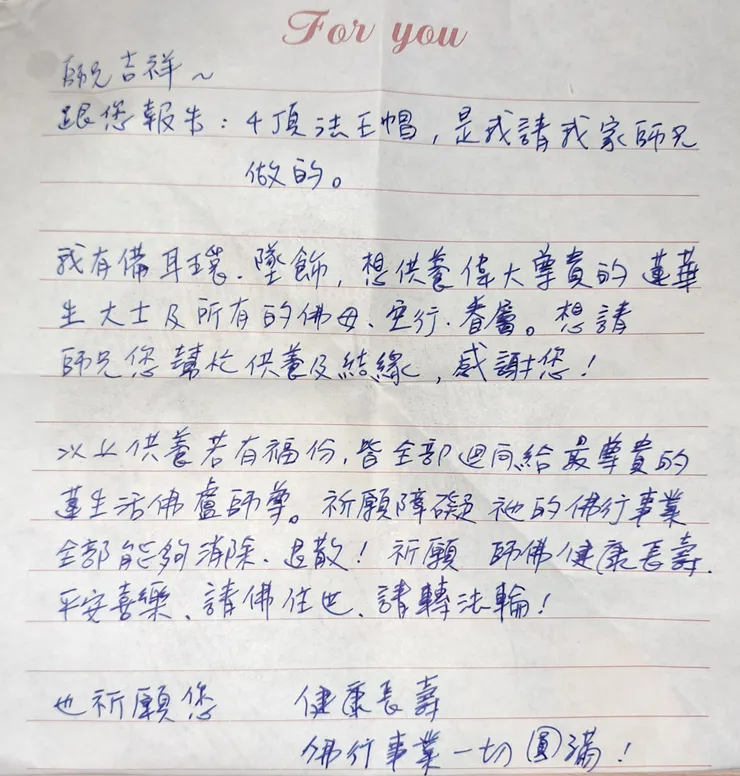 For you
師兄吉祥~
跟您報告：4頂法王帽，是我請我家師兄
做的。
我有備耳環、墜飾，想供養偉大尊貴的蓮華
生大士及所有的佛母、空行、眷屬。想請
師兄您幫忙供養及結緣，感謝您！
以上供養若有福份，皆全部迴向給最尊貴的
蓮生活佛盧師尊。祈願障礙祂的佛行事業
全部能夠消除、退散！祈願 師佛健康長壽、
平安喜樂、請佛住世、請轉法輪！
也祈願您 健康長壽
佛行事業一切圓滿！